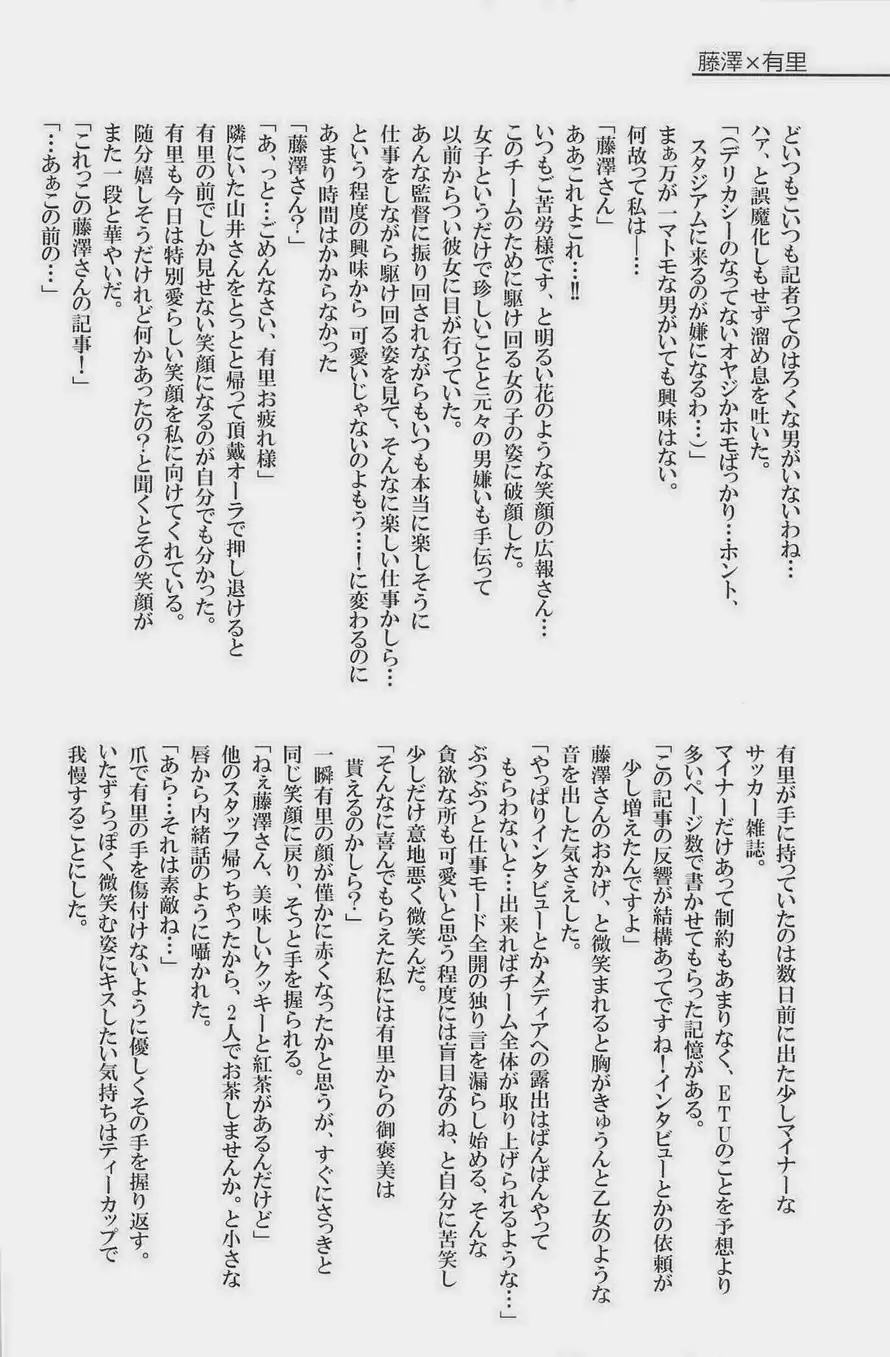 藤澤×有里
どいつもこいつも記者ってのはろくな男がいないわね…
ハァ、と誤魔化しもせず溜め息を吐いた。
「（デリカシーのなってないオヤジかホモばっかり…ホント、
スタジアムに来るのが嫌になるわ…）」
まぁ万が一マトモな男がいても興味はない。
何故って私は―…
「藤澤さん」
ああこれよこれ…!!
いつもご苦労様です、と明るい花のような笑顔の広報さん…
このチームのために駆け回る女の子の姿に破顔した。
女子というだけで珍しいことと元々の男嫌いも手伝って
以前からつい彼女に目が行っていた。
あんな監督に振り回されながらもいつも本当に楽しそうに
仕事をしながら駆け回る姿を見て、そんなに楽しい仕事かしら…
という程度の興味から 可愛いじゃないのよもう…！に変わるのに
あまり時間はかからなかった
「藤澤さん？」
「あ、っと…ごめんなさい、有里お疲れ様」
隣にいた山井さんをとっとと帰って頂戴オーラで押し退けると
有里の前でしか見せない笑顔になるのが自分でも分かった。
有里も今日は特別愛らしい笑顔を私に向けてくれている。
随分嬉しそうだけれど何かあったの？と聞くとその笑顔が
また一段と華やいだ。
「これっこの藤澤さんの記事！」
「…あぁこの前の…」
有里が手に持っていたのは数日前に出た少しマイナーな
サッカー雑誌。
マイナーだけあって制約もあまりなく、ＥＴＵのことを予想より
多いページ数で書かせてもらった記憶がある。
「この記事の反響が結構あってですね！インタビューとかの依頼が
少し増えたんですよ」
藤澤さんのおかげ、と微笑まれると胸がきゅうんと乙女のような
音を出した気さえした。
「やっぱりインタビューとかメディアへの露出はばんばんやって
もらわないと…出来ればチーム全体が取り上げられるような…」
ぶつぶつと仕事モード全開の独り言を漏らし始める、そんな
貪欲な所も可愛いと思う程度には盲目なのね、と自分に苦笑し
少しだけ意地悪く微笑んだ。
「そんなに喜んでもらえた私には有里からの御褒美は
貰えるのかしら？」
一瞬有里の顔が僅かに赤くなったかと思うが、すぐにさっきと
同じ笑顔に戻り、そっと手を握られる。
「ねぇ藤澤さん、美味しいクッキーと紅茶があるんだけど」
他のスタッフ帰っちゃったから、２人でお茶しませんか。と小さな
唇から内緒話のように囁かれた。
「あら…それは素敵ね…」
爪で有里の手を傷付けないように優しくその手を握り返す。
いたずらっぽく微笑む姿にキスしたい気持ちはティーカップで
我慢することにした。